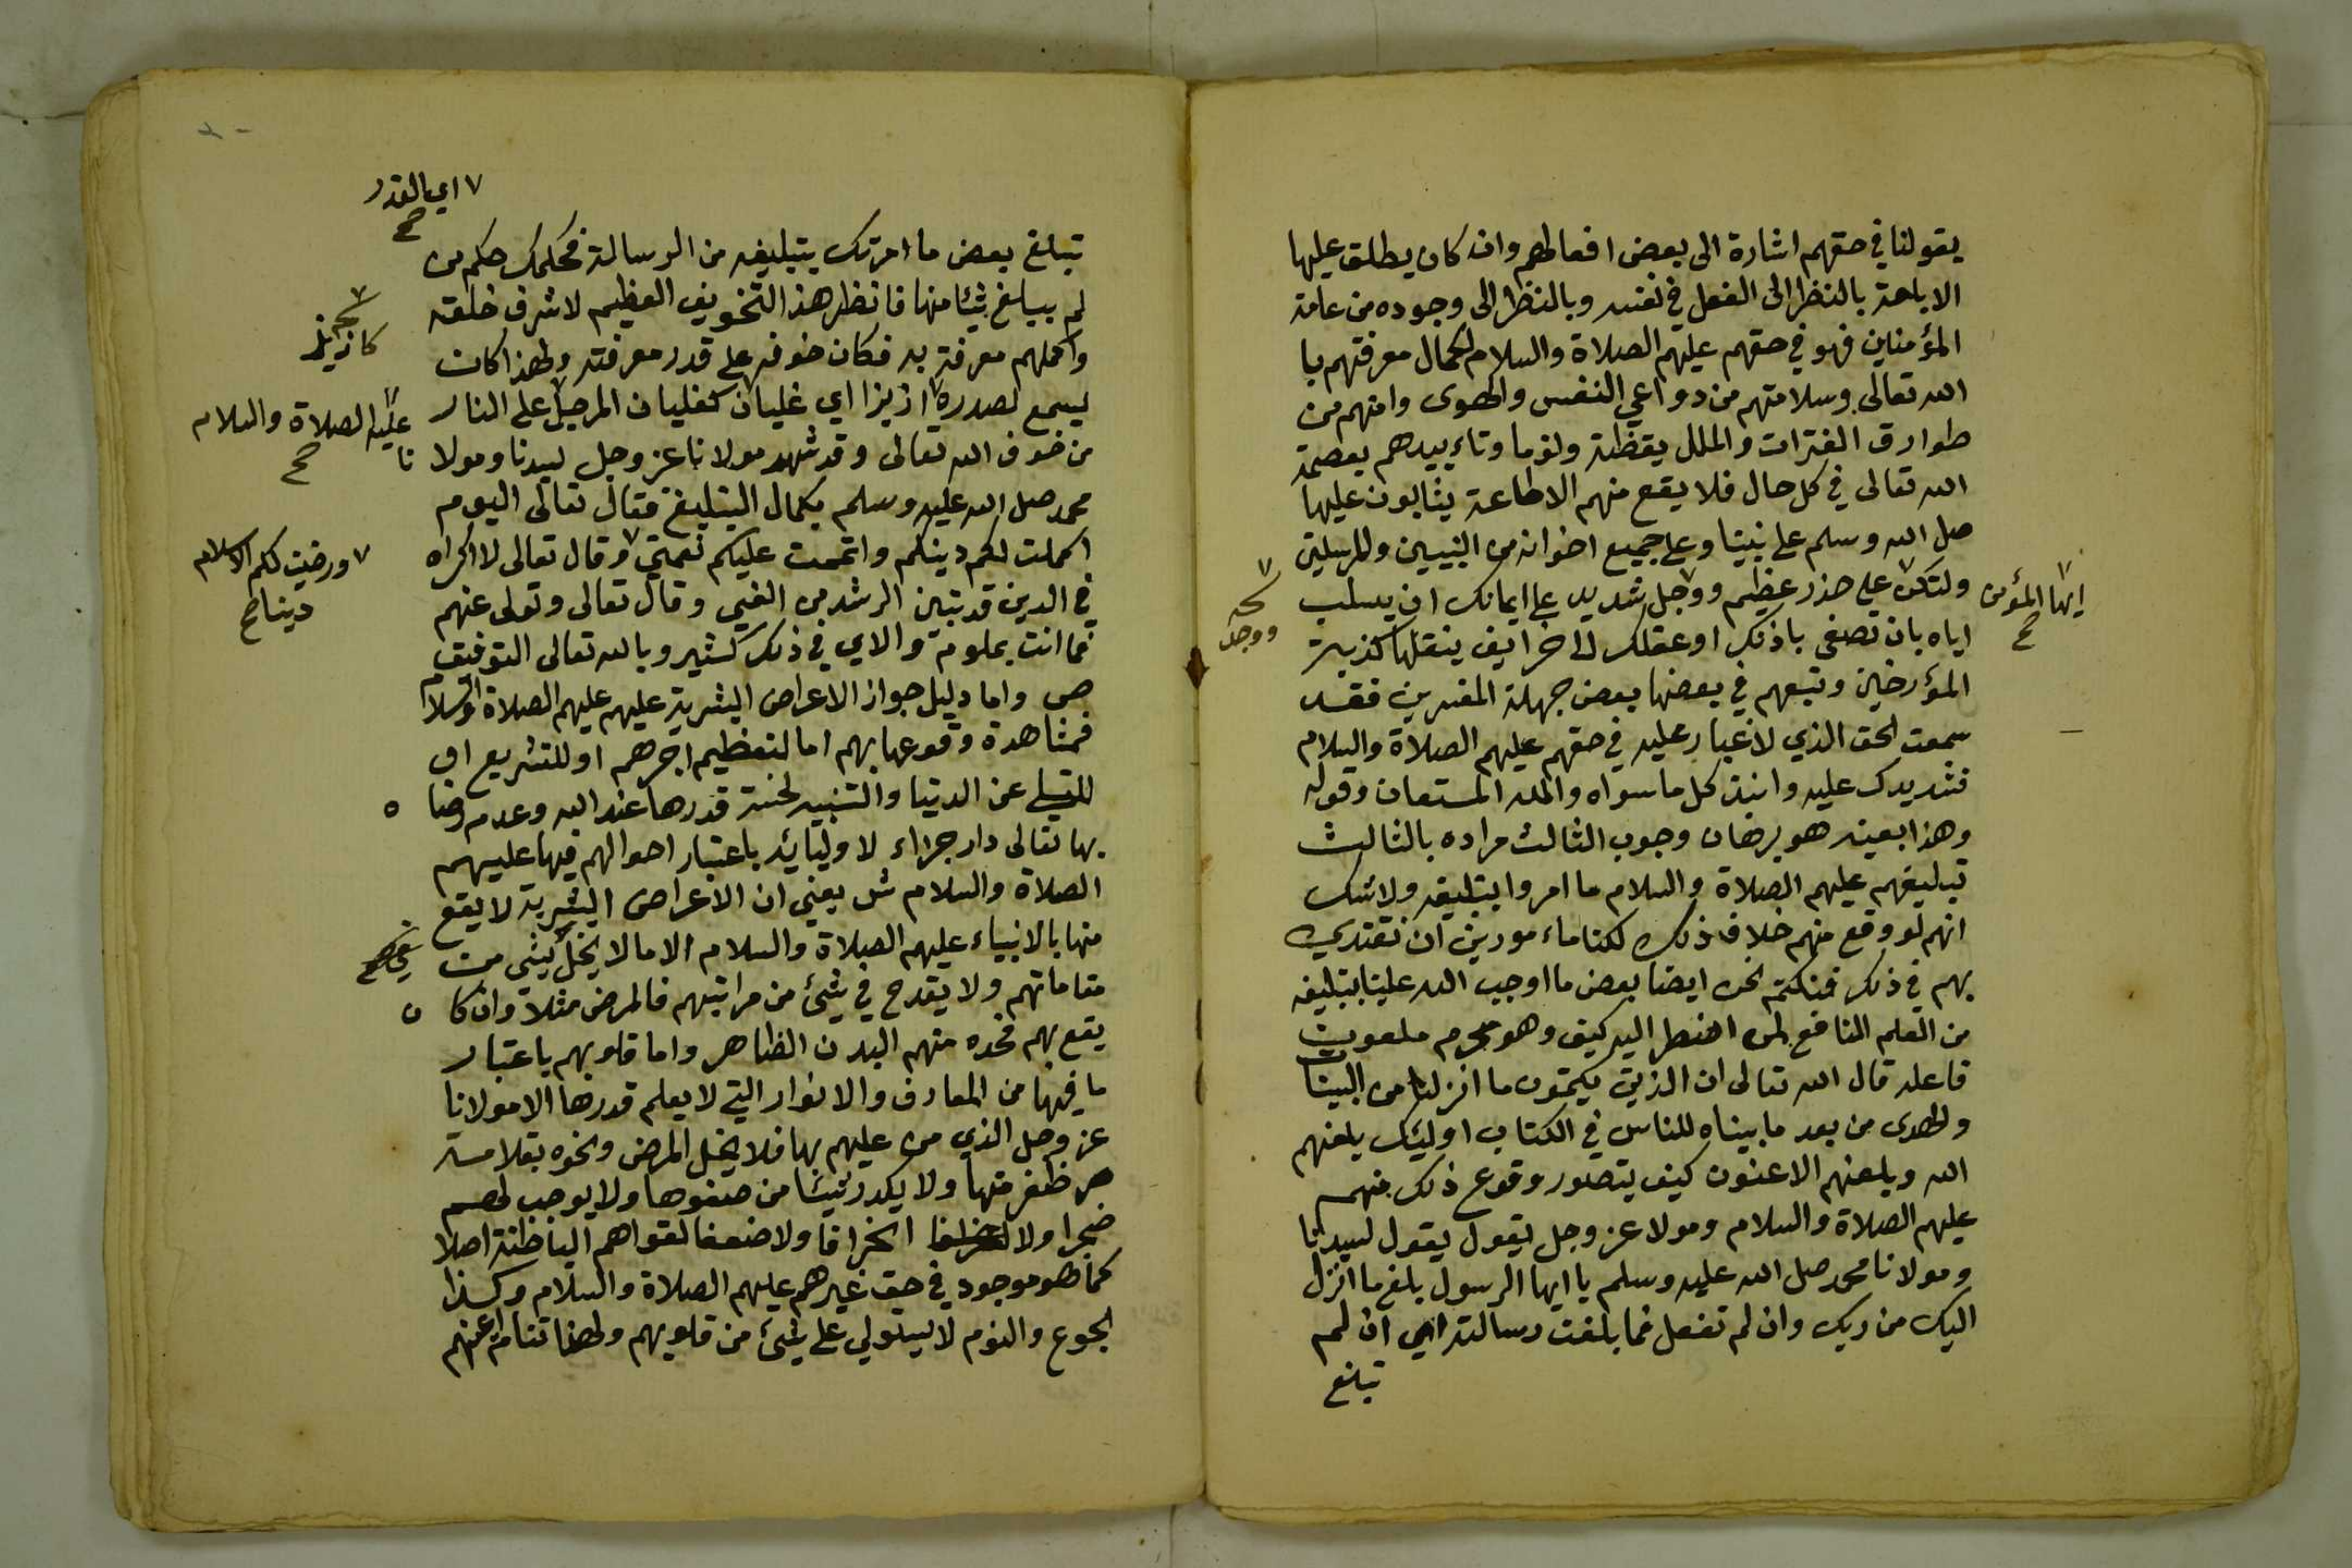 يقولنا في حقهم اشارة الى بعض افعالهم وان كان يطلق عليها
الاباحة بالنظر الى الفعل في نفسه وبالنظر الى وجوده من عامة
المؤمنين فهو في حقهم عليهم الصلاة والسلام لكمال معرفتهم با
الله تعالى وسلامتهم من دواعي النفس والهوى وامنهم من
طوارق الفترات والملل يقظة ونوما وتاءييدهم بعصمة
الله تعالى في كل حال فلا يقع منهم الاطاعة يثابون عليها
صل الله وسلم على نبينا وعلى جميع اخوانه من النبيين والمرسلين
ولتكن على حذر عظيم ووجل شديد على ايمانك ان يسلب
ايها المؤمن صح
ووجل
اياه بان تصغى باذنك او عقلك لاخرايف ينقلها كذبة
المؤرخين وتبعهم في بعضها بعض جهلة المفسرين فقد
سمعت الحق الذي لا غبار عليه في حقهم عليهم الصلاة والسلام
فشد يدك عليه وانبذ كل ما سواه والله المستعان وقوله
وهذا بعينه هو برهان وجوب الثالث مراده بالثالث
تبليغهم عليهم الصلاة والسلام ما امروا بتبليغه ولا شك
انهم لو وقع منهم خلاف ذلك لكنا ماءمورين ان نقتدي
بهم في ذلك فنكتم نحن ايضا بعض ما اوجب الله علينا بتبليغه
من العلم النافع لمن اضطر اليه كيف وهو محرم ملعون
فاعله قال الله تعالى ان الذين يكتمون ما انزلنا من البينات
والهدى من بعد ما بيناه للناس في الكتاب اوليئك يلعنهم
الله ويلعنهم الاعنون كيف يتصور وقوع ذلك منهم
عليهم الصلاة والسلام ومولا عز وجل يقول يقول لسيدنا
ومولانا محمد صل الله عليه وسلم يا ايها الرسول بلغ ما انزل
اليك من ربك وان لم تفعل فما بلغت رسالته اي ان لم
تبلغ
٧ اي بالقدر
صح
تبلغ بعض ما امرتك بتبليغه من الرسالة فحكمك حكم من
لم يبلغ شيئا منها فانظر هذا التخويف العظيم لاشرف خلقه
واكملهم معرفة به فكان خوفه على قدر معرفته ولهذا كان
كازيز
ليسمع لصدره ازيزا اي غليان كغليان المرجل على النار
عليه الصلاة والسلام
صح
من خوف الله تعالى وقد شهد مولانا عز وجل لسيدنا ومولا نا
محمد صل الله عليه وسلم بكمال التبليغ فقال تعالى اليوم
اكملت لكم دينكم واتممت عليكم نعمتي وقال تعالى لا اكراه
٧ ورضيت لكم الاسلام
دينا صح
في الدين قد تبين الرشد من الغي وقال تعالى وتولى عنهم
فما انت بملوم والاي في ذلك كثير وبالله تعالى التوفيق
ص واما دليل جواز الاعراض البشرية عليهم عليهم الصلاة والسلام
فمشاهدة وقوعها بهم اما لتعظيم اجرهم او للتشريع او
للتسلي عن الدنيا والتنبيه لخسة قدرها عند الله وعدم رضا ه
بها تعالى دار جزاء لاوليائه باعتبار احوالهم فيها عليهم
الصلاة والسلام ش يعني ان الاعراض البشرية لا يقع
منها بالانبياء عليهم الصلاة والسلام الا ما لا يخل بشئ من
مقاماتهم ولا يقدح في شئ من مراتبهم فالمرض مثلا وان كا ن
يقع بهم فحده منهم البدن الظاهر واما قلوبهم باعتبار
ما فيها من المعارف والانوار التي لا يعلم قدرها الا مولانا
عز وجل الذي من عليهم بها فلا يخل المرض ونحوه بقلامة
ظفر منها ولا يكدر شيئا من صفوها ولا يوجب لهم
ضجرا ولا انحرافا ولا ضعفا لقواهم الباطنة اصلا
كما هو موجود في حق غيرهم عليهم الصلاة والسلام وكذا
الجوع والنوم لا يستولي على شئ من قلوبهم ولهذا تنام اعينهم